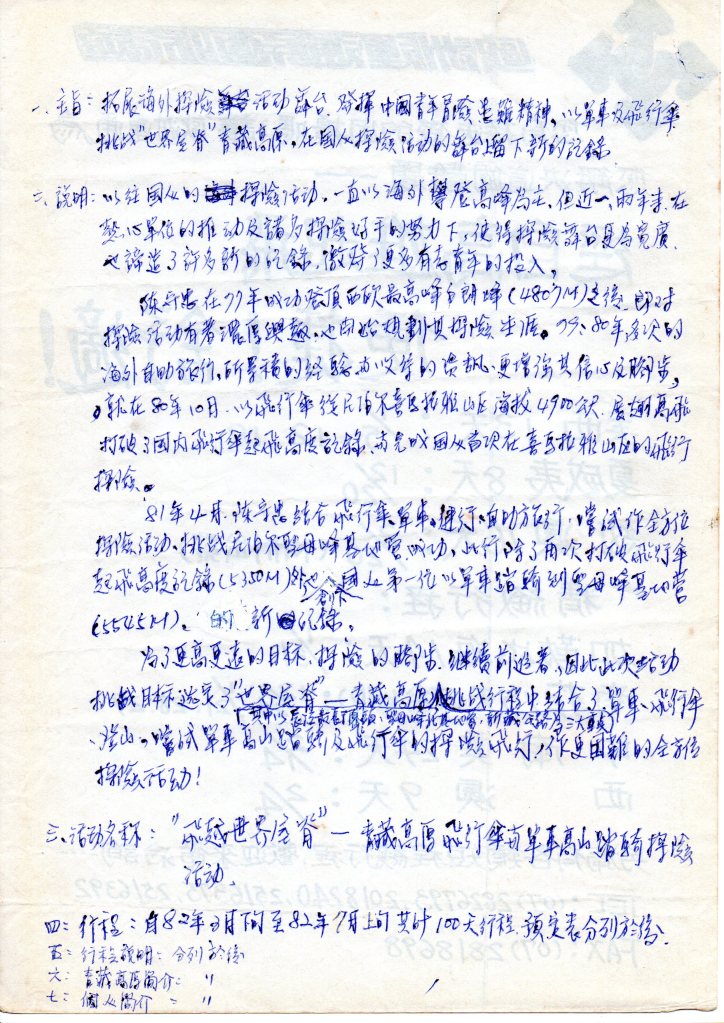 一、主旨：拓展海外探險活動舞台，發揮中國青年冒險患難精神，以單車及飛行傘
挑战"世界屋脊"青藏高原，在國人探險活動的舞台上留下新的記錄
二、說明：以往國人的探險活動，一直以海外攀登高峰為主，但近一、兩年來，在
熱心單位的推動及諸多探險好手的努力下，使得探險舞台更為寬廣，
也諦造了許多新的記錄，激發了更多有志青年的投入。
陳守忠在77年成功登頂西欧最高峰白朗峰(4807M)之後，即对
探險活動有著濃厚興趣，也開始規劃其探險生涯。79、80年多次的
海外自助旅行，所累積的經驗与收集的資訊，更增強其信心及腳步，
，就在80年10月，以飛行傘從尼泊尔喜馬拉雅山区海拔4900公尺，展翅高飛
打破了國内飛行傘起飛高度記錄，与完成國人首次在喜馬拉雅山区的飛行
探險。
81年4月，陳守忠結合飛行傘、單車、健行、自助旅行，嚐試作全方位
探險活動，挑战尼泊尔聖母峰基地營成功，此行除了再次打破飛行傘
起飛高度記錄(5350M)外，也創下國人第一位以單車踏騎到聖母峰基地營
(5545M)，的新記錄。
為了更高更遠的目标，探險的腳步，継續前進著，因此此次活動
挑战目标选定了"世界屋脊"—青藏高原，挑战行程中結合了單車、飛行傘
、登山。嚐試單車高山踏騎及飛行傘的探險飛行，作更困難的全方位
探險活動！
三、活動名称："飛越世界屋脊"—青藏高原飛行傘与單車高山踏騎探險
活動。
四：行程：自82年3月下旬至82年7月上旬共計100天行程，預定表分列於後。
五：行程說明：分列於後
六：青藏高原簡介：〃
七：個人簡介：〃